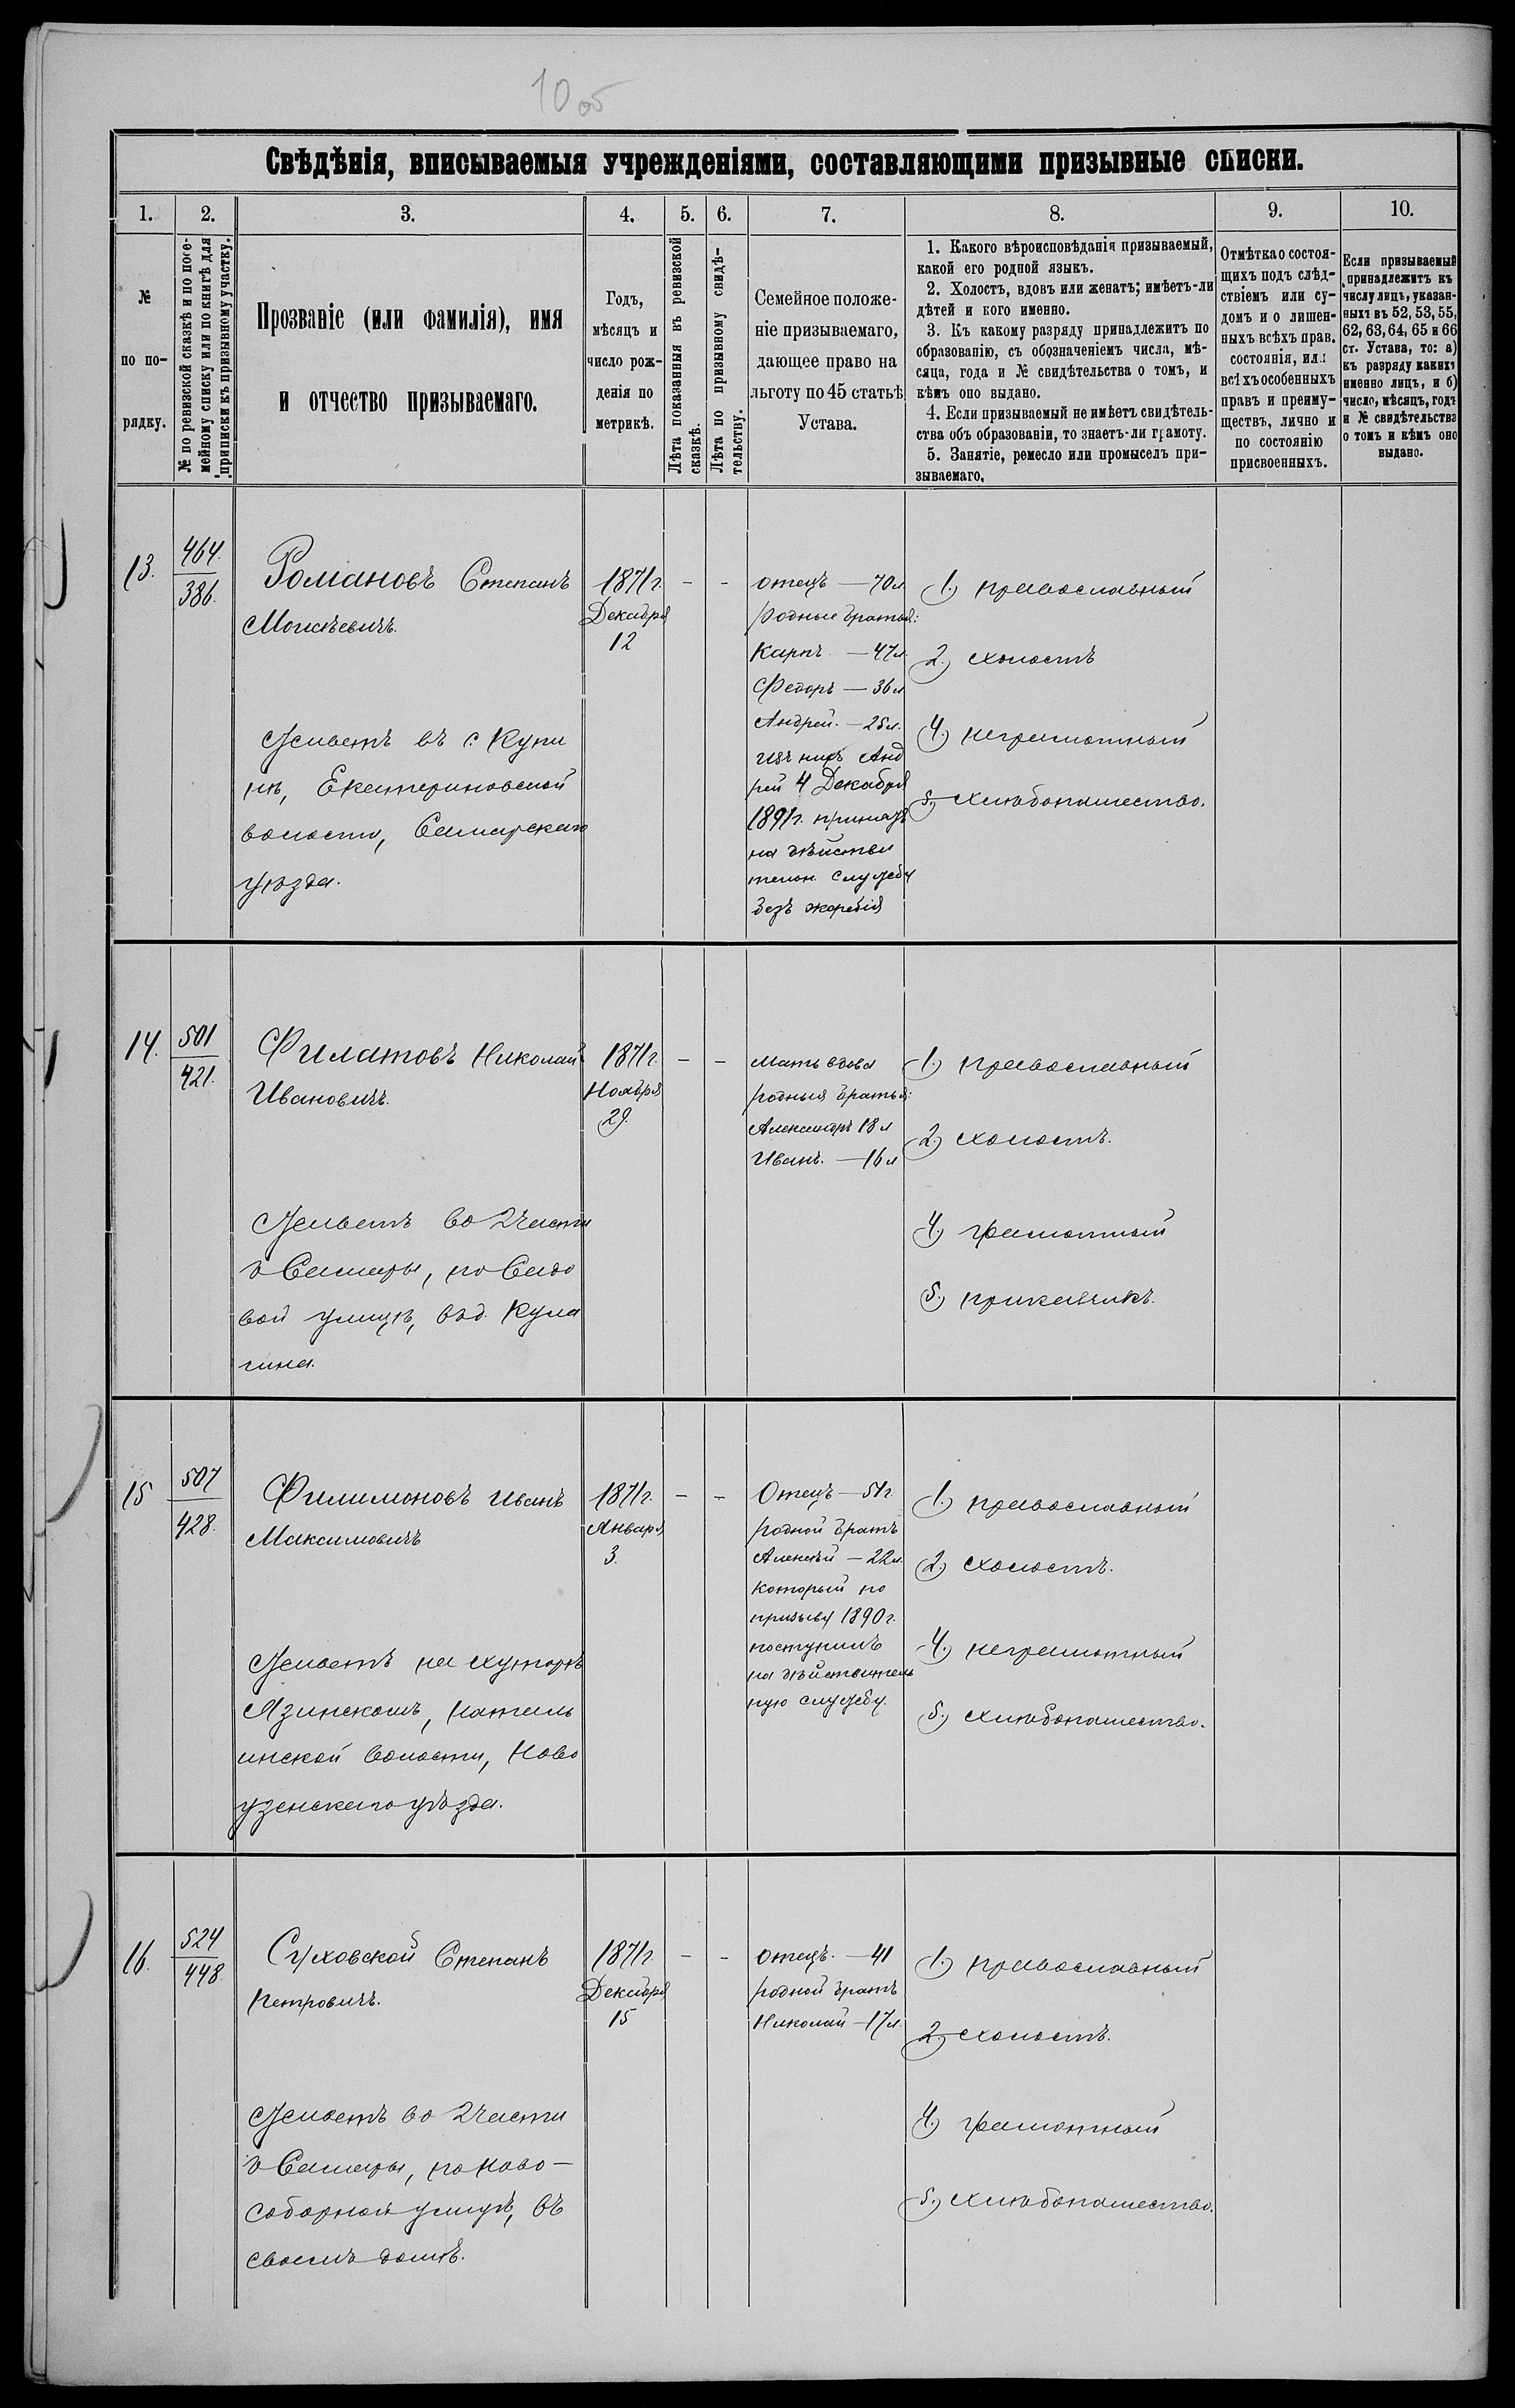 10 об
Свѣдѣнія, вписываемыя учрежденіями, составляющими призывные списки.
1. 2. 3. 4. 5. 6. 7. 8. 9. 10.
№
по по-
рядку.
№ по ревизской сказкѣ и по посе-
мейному списку или по книгѣ для
приписки къ призывному участку.
Прозваніе (или фамилія), имя
и отчество призываемаго.
Годъ,
мѣсяцъ и
число рож-
денія по
метрикѣ.
Лѣта показанныя въ ревизской
сказкѣ.
Лѣта по призывному свидѣ-
тельству.
Семейное положе-
ніе призываемаго,
дающее право на
льготу по 45 статьѣ
Устава.
1. Какого вѣроисповѣданія призываемый,
какой его родной языкъ.
2. Холостъ, вдовъ или женатъ; имѣетъ-ли
дѣтей и кого именно.
3. Къ какому разряду принадлежитъ по
образованію, съ обозначеніемъ числа, мѣ-
сяца, года и № свидѣтельства о томъ, и
кѣмъ оно выдано.
4. Если призываемый не имѣетъ свидѣтель-
ства объ образованіи, то знаетъ-ли грамоту.
5. Занятіе, ремесло или промыселъ при-
зываемаго.
Отмѣтка о состоя-
щихъ подъ слѣд-
ствіемъ или су-
домъ и о лишен-
ныхъ всѣхъ прав.
состоянія, или
всѣхъ особенныхъ
правъ и преиму-
ществъ, лично и
по состоянію
присвоенныхъ.
Если призываемый
принадлежитъ къ
числу лицъ, указан-
ныхъ въ 52, 53, 55,
62, 63, 64, 65 и 66
ст. Устава, то: а)
къ разряду какихъ
именно лицъ, и б)
число, мѣсяцъ, годъ
и № свидѣтельства
о томъ и кѣмъ оно
выдано.
13.
464.
386.
Романовъ Степанъ
Моисѣевичъ.
Живетъ въ с. Купи
нѣ, Екатериновской
волости, Самарскаго
уѣзда.
1871 г.
Декабря
12
-
-
отецъ — 70 л
родные братья:
Карпъ. — 47 л.
Федоръ — 36 л
Андрей. — 25 л.
изъ нихъ Анд
рей 4 Декабря
1891 г. принятъ
на дѣйстви
тельн. службу
безъ жеребія
1.) православный
2.) холостъ
4.) неграмотный
5.) хлѣбопашество.
14.
501
421.
Филатовъ Николай
Ивановичъ.
Живетъ во 2 части
г Самары, по Садо
вой улицѣ, в д. Кула
гина.
1871 г.
Ноября
29.
-
-
мать вдова
родныя братья:
Александръ 18 л
Иванъ. — 16 л
1.) православный
2.) холостъ.
4.) грамотный
5.) прикащикъ.
15
507
428.
Филимоновъ Иванъ
Максимовичъ
Живетъ на хуторѣ
Мзинскомъ,
инской волости, Ново
узенскаго уѣзда.
1871 г.
Января
3.
-
-
Отецъ — 51 г.
родной братъ
Алексѣй — 22 л.
который по
призыву 1890 г.
поступилъ
на дѣйствитель
ную службу.
1.) православный
2.) холостъ.
4.) неграмотный
5.) хлѣбопашество.
16.
524
448.
Суховской Степанъ
Петровичъ.
Живетъ во 2 части
г Самары, по Ново-
соборной улицѣ, въ
своемъ домѣ.
1871 г.
Декабря
15
-
-
отецъ. — 41
родной братъ
Николай — 17 л.
1.) православный
2.) холостъ.
4.) грамотный
5.) хлѣбопашество.